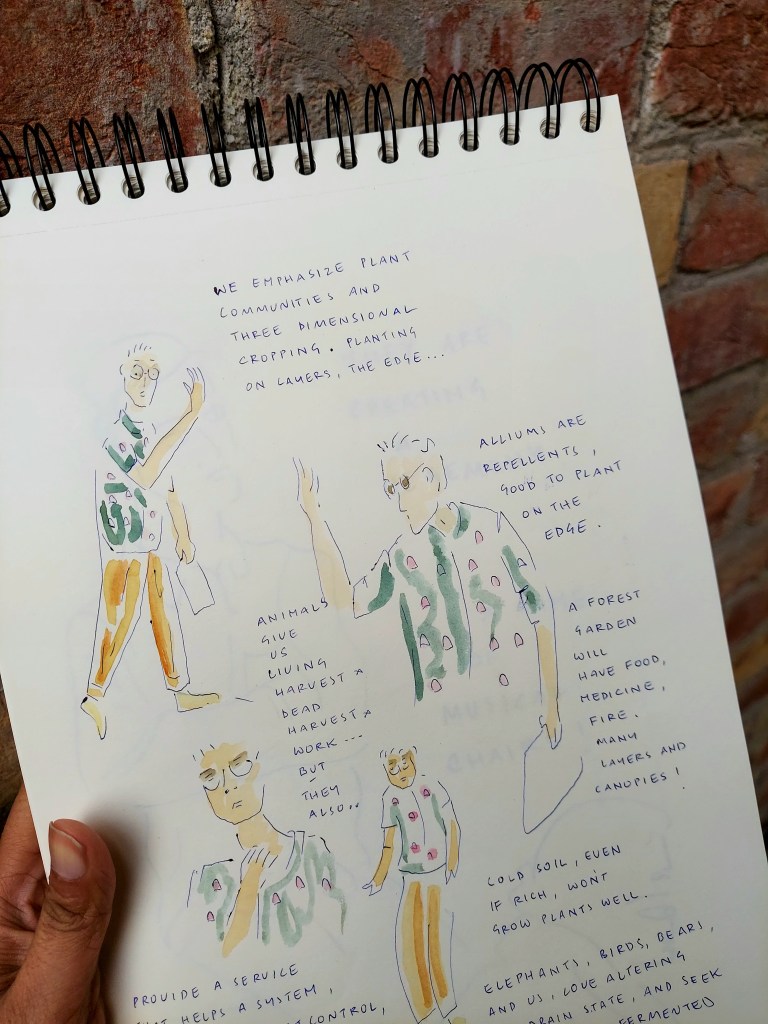 WE EMPHASIZE PLANT
COMMUNITIES AND
THREE DIMENSIONAL
CROPPING. PLANTING
ON LAYERS, THE EDGE...
ALLIUMS ARE
REPELLENTS,
GOOD TO PLANT
ON THE
EDGE.
ANIMALS
GIVE
US
LIVING
HARVEST x
DEAD
HARVEST x
WORK...
BUT
THEY
ALSO..
A FOREST
GARDEN
WILL
HAVE FOOD,
MEDICINE,
FIRE.
MANY
LAYERS AND
CANOPIES!
PROVIDE A SERVICE
HELPS A SYSTEM,
CONTROL,
COLD SOIL, EVEN
IF RICH, WON'T
GROW PLANTS WELL.
ELEPHANTS, BIRDS, BEARS,
AND US, LOVE ALTERING
BRAIN STATE, AND SEEK
FERMENTED